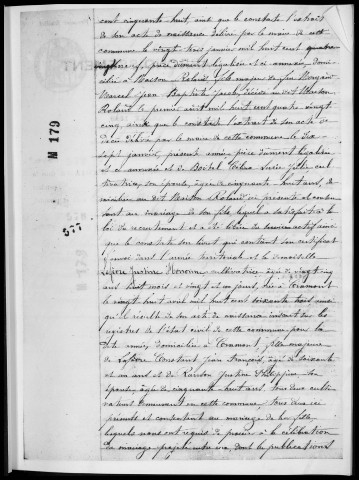 cent cinquante huit, ainsi que le constate l'extrait
de son acte de naissance délivré par le maire de cette
commune le vingt trois janvier mil huit cent quatre
pièce dûment légalisée et ci annexée, domi-
cilié à Maison Roland, fils majeur de feu
Marcel Jean Baptiste Jacob, décédé au dit Maison
Roland le premier août mil huit cent quatre vingt
cinq, ainsi que le constate l'extrait de son acte de
décès délivré par le maire de cette commune le dix
sept janvier, présente année, pièce dûment légalisée
et ci annexée et de cul-
tivatrice, son épouse, âgée de cinquante huit ans, do-
miciliée au dit Maison Roland ici présente et consen-
tant au mariage de son fils, lequel a satisfait à la
loi de recrutement et a été libéré du service actif ainsi
que le constate son livret qui contient son certificat
d'envoi dans l'armée territoriale et la demoiselle
Lefèvre Justine Honorine, cultivatrice âgée de vingt cinq
ans huit mois et vingt et un jours, née à Cramont
le vingt huit avril mil huit cent soixante trois ainsi
qu'il résulte de son acte de naissance inscrit sur les
registres de l'état civil de cette commune pour la
dite année, domiciliée à Cramont, fille majeure
de Lefèvre Constant Jean François, âgé de soixante
et un ans et de Justine Philippine son
épouse, âgée de cinquante huit ans, tous deux culti-
vateurs demeurant en cette commune, tous deux ici
présents et consentant au mariage de leur fille,
lesquels nous ont requis de procéder à la célébration
du mariage projeté entre eux, dont les publications
M 179
577